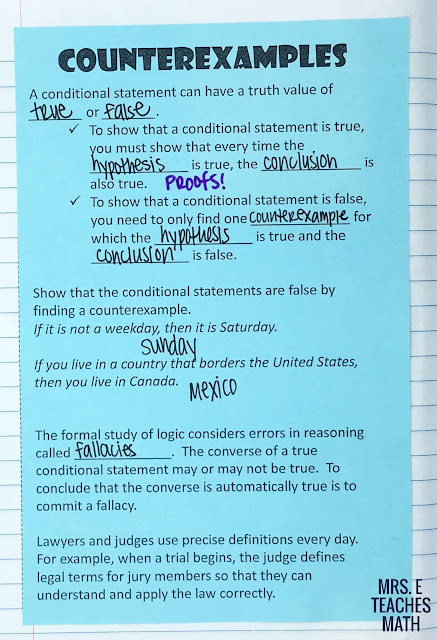 COUNTEREXAMPLES
A conditional statement can have a truth value of
true or false.
✓ To show that a conditional statement is true,
you must show that every time the
hypothesis is true, the conclusion is
also true. PROOFS!
✓ To show that a conditional statement is false,
you need to only find one counterexample for
which the hypothesis is true and the
conclusion is false.
Show that the conditional statements are false by
finding a counterexample.
If it is not a weekday, then it is Saturday.
Sunday
If you live in a country that borders the United States,
then you live in Canada.
Mexico
The formal study of logic considers errors in reasoning
called fallacies. The converse of a true
conditional statement may or may not be true. To
conclude that the converse is automatically true is to
commit a fallacy.
Lawyers and judges use precise definitions every day.
For example, when a trial begins, the judge defines
legal terms for jury members so that they can
understand and apply the law correctly.
MRS. E
TEACHES
MATH